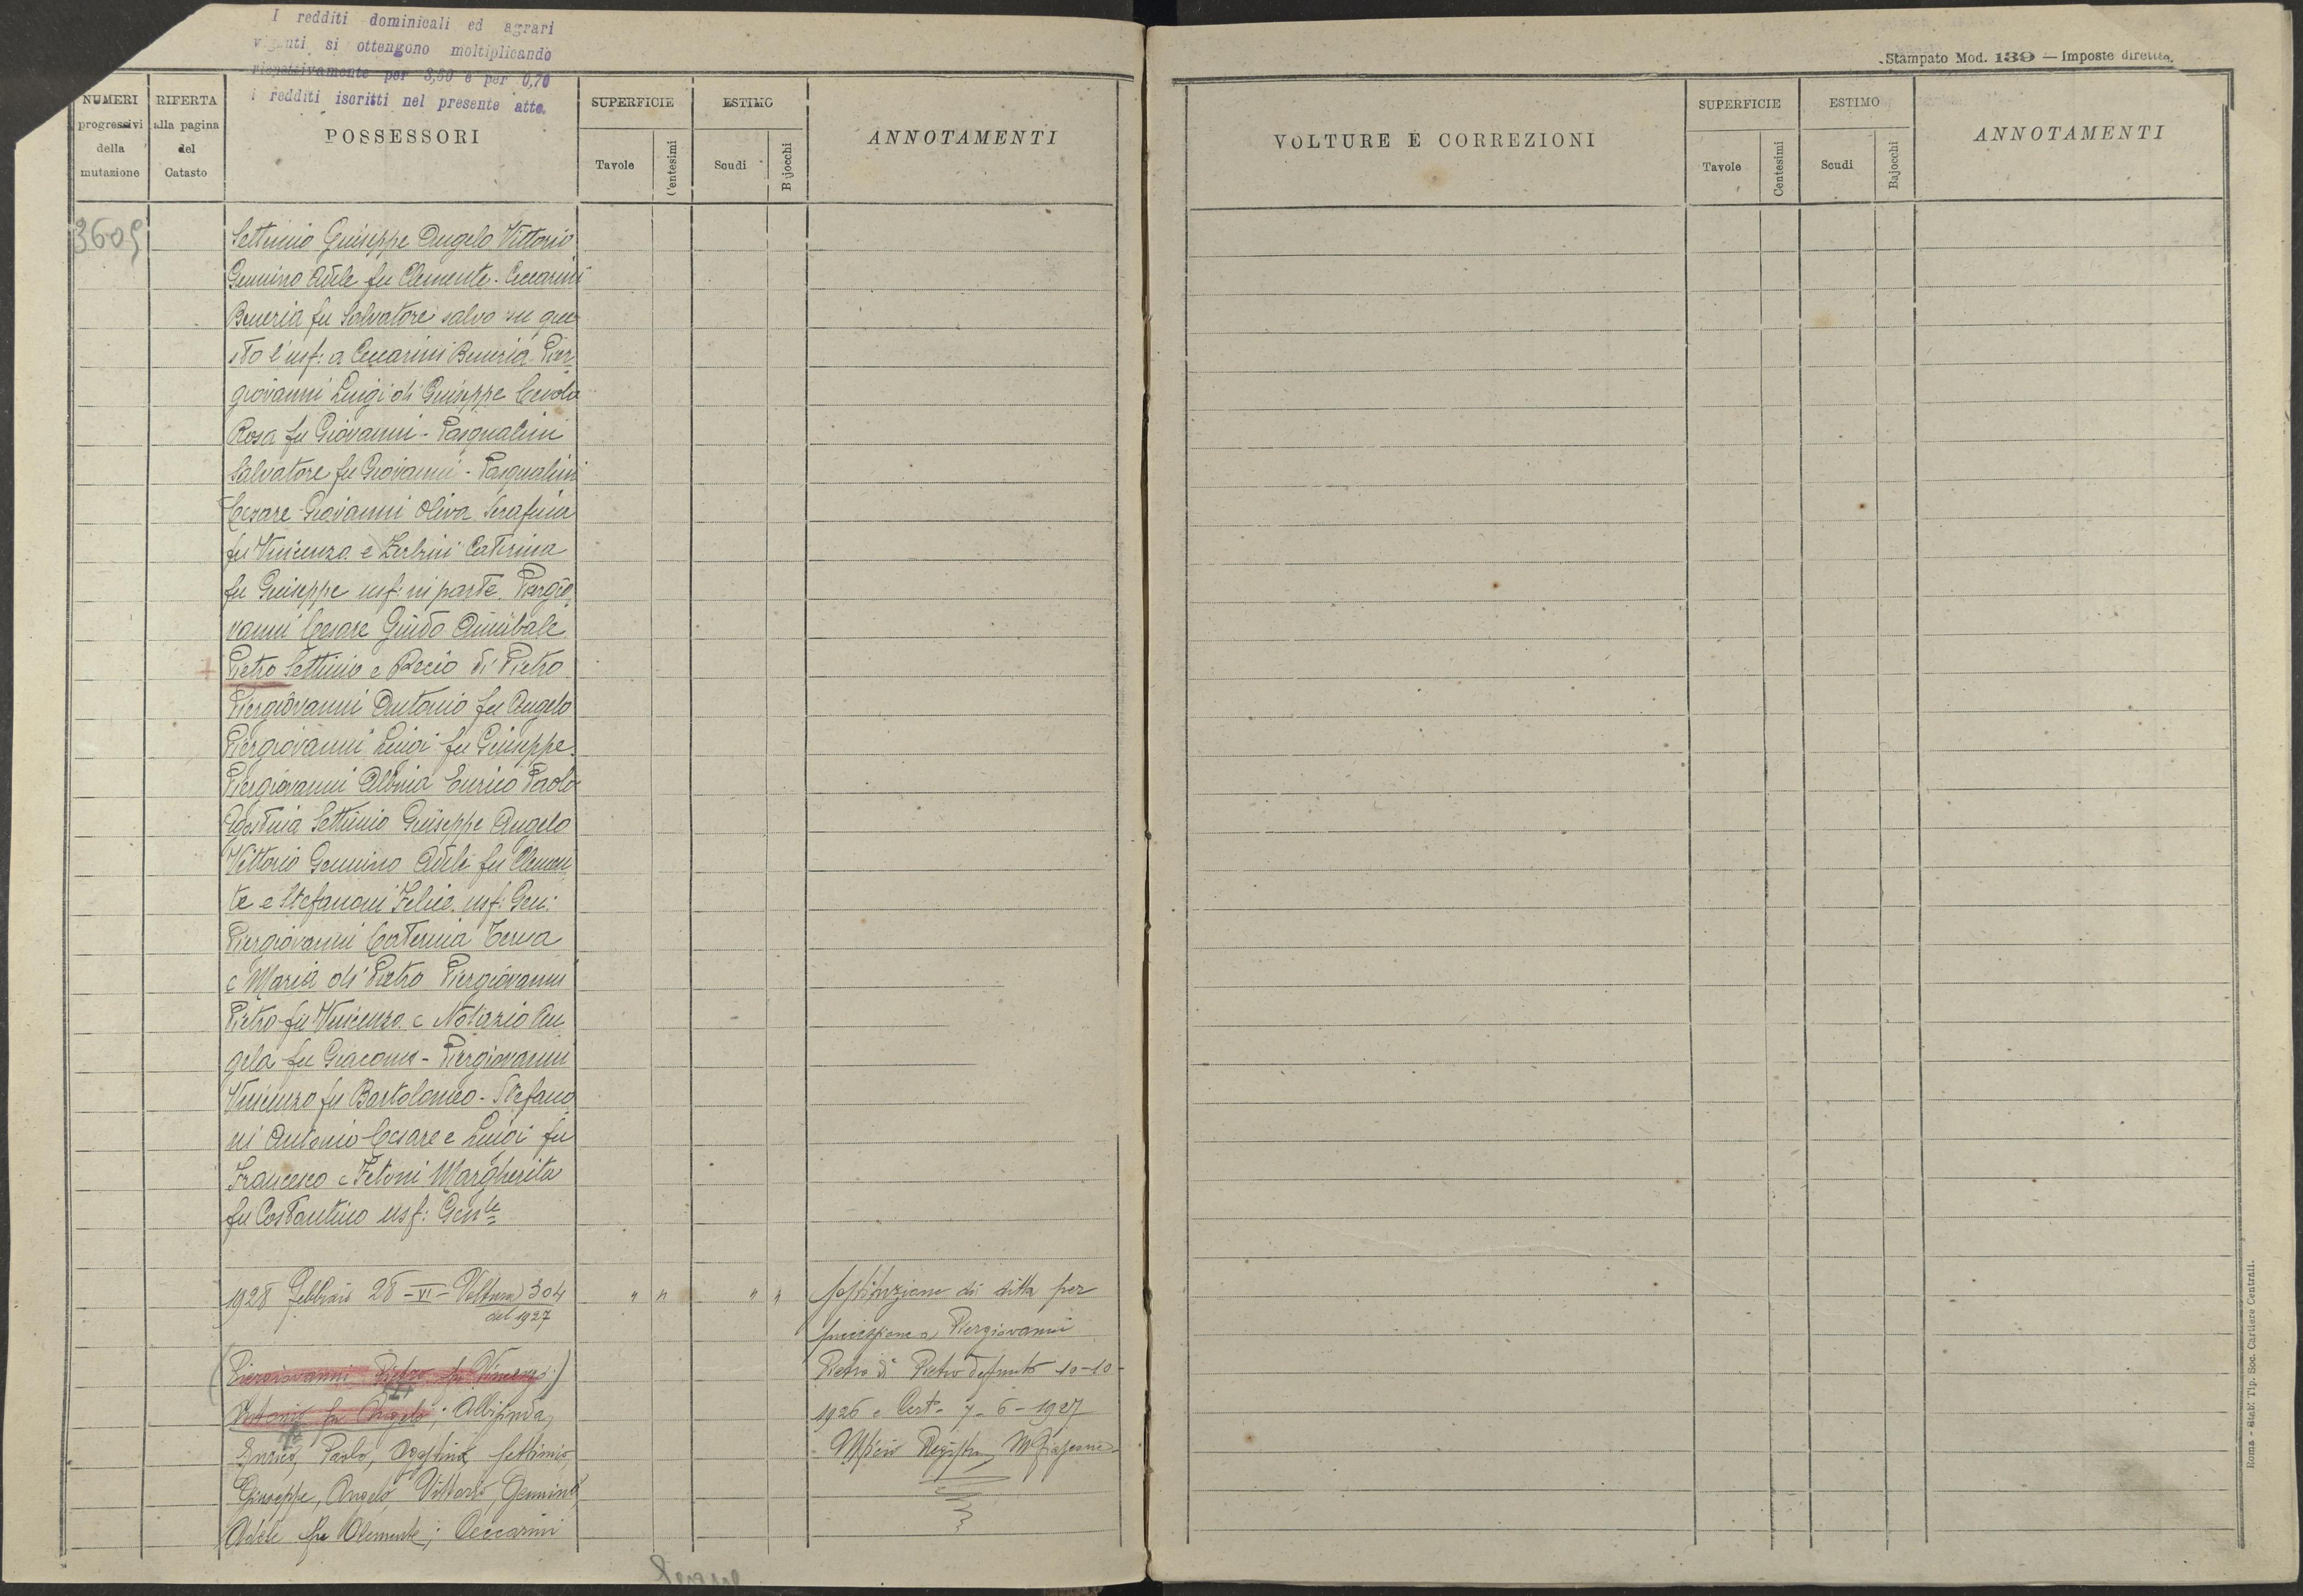 I redditi dominicali ed agrari
vigenti si ottengono moltiplicando
rispettivamente per 3,60 e per 0,70
i redditi iscritti nel presente atto.
NUMERI progressivi della mutazione
RIFERTA alla pagina del Catasto
POSSESSORI
SUPERFICIE
Tavole
Centesimi
ESTIMO
Scudi
Bajocchi
ANNOTAMENTI
3609
Settimio Giuseppe Angelo Vittorio
Gemino Adele fu Clemente - Ceccarini
Beneria fu Salvatore salvo su que
sto l'usf: a Ceccarini Beneria - Pier
giovanni Luigi di Giuseppe Cevola
Rosa fu Giovanni - Pasqualini
Salvatore fu Giovanni - Pasqualini
Cesare Giovanni Oliva Serafina
fu Vincenzo e Zerbini Caterina
fu Giuseppe usf: in parte. Piergio
vanni Cesare Guido Annibale
Pietro Settimio e Decio di Pietro
Piergiovanni Antonio fu Angelo
Piergiovanni Luigi fu Giuseppe
Piergiovanni Albina Enrico Paolo
Agostina Settimio Giuseppe Angelo
Vittorio Gemmino Adele fu Clemen
te e Stefanoni Felice usf: Gen:
Piergiovanni Caterina Teresa
e Maria di Pietro Piergiovanni
Pietro fu Vincenzo e Notazio An
gela fu Giacomo - Piergiovanni
Vincenzo fu Bartolomeo - Stefano
ni Antonio Cesare e Luigi fu
Francesco e Fetoni Margherita
fu Costantino usf: Genle
1928 Febbraio 28 - VI - Voltura 304
del 1927
" " " "
(Piergiovanni Pietro fu Vincenzo)
Antonio fu Angelo; Albi
Enrico, Paolo, Agostina, Settimio,
Giuseppe, Angelo, Vittorio, Gemmino
Adele fu Clemente; Ceccarini
Sostituzione di ditta per
successione a Piergiovanni
Pietro di Pietro defunto 10-10-
1926 e Cert. 7-6-1927
Ufficio Registro
Stampato Mod. 139 — Imposte dirette.
VOLTURE E CORREZIONI
SUPERFICIE
Tavole
Centesimi
ESTIMO
Scudi
Bajocchi
ANNOTAMENTI
Roma - Stab. Tip. Soc. Cartiere Centrali.